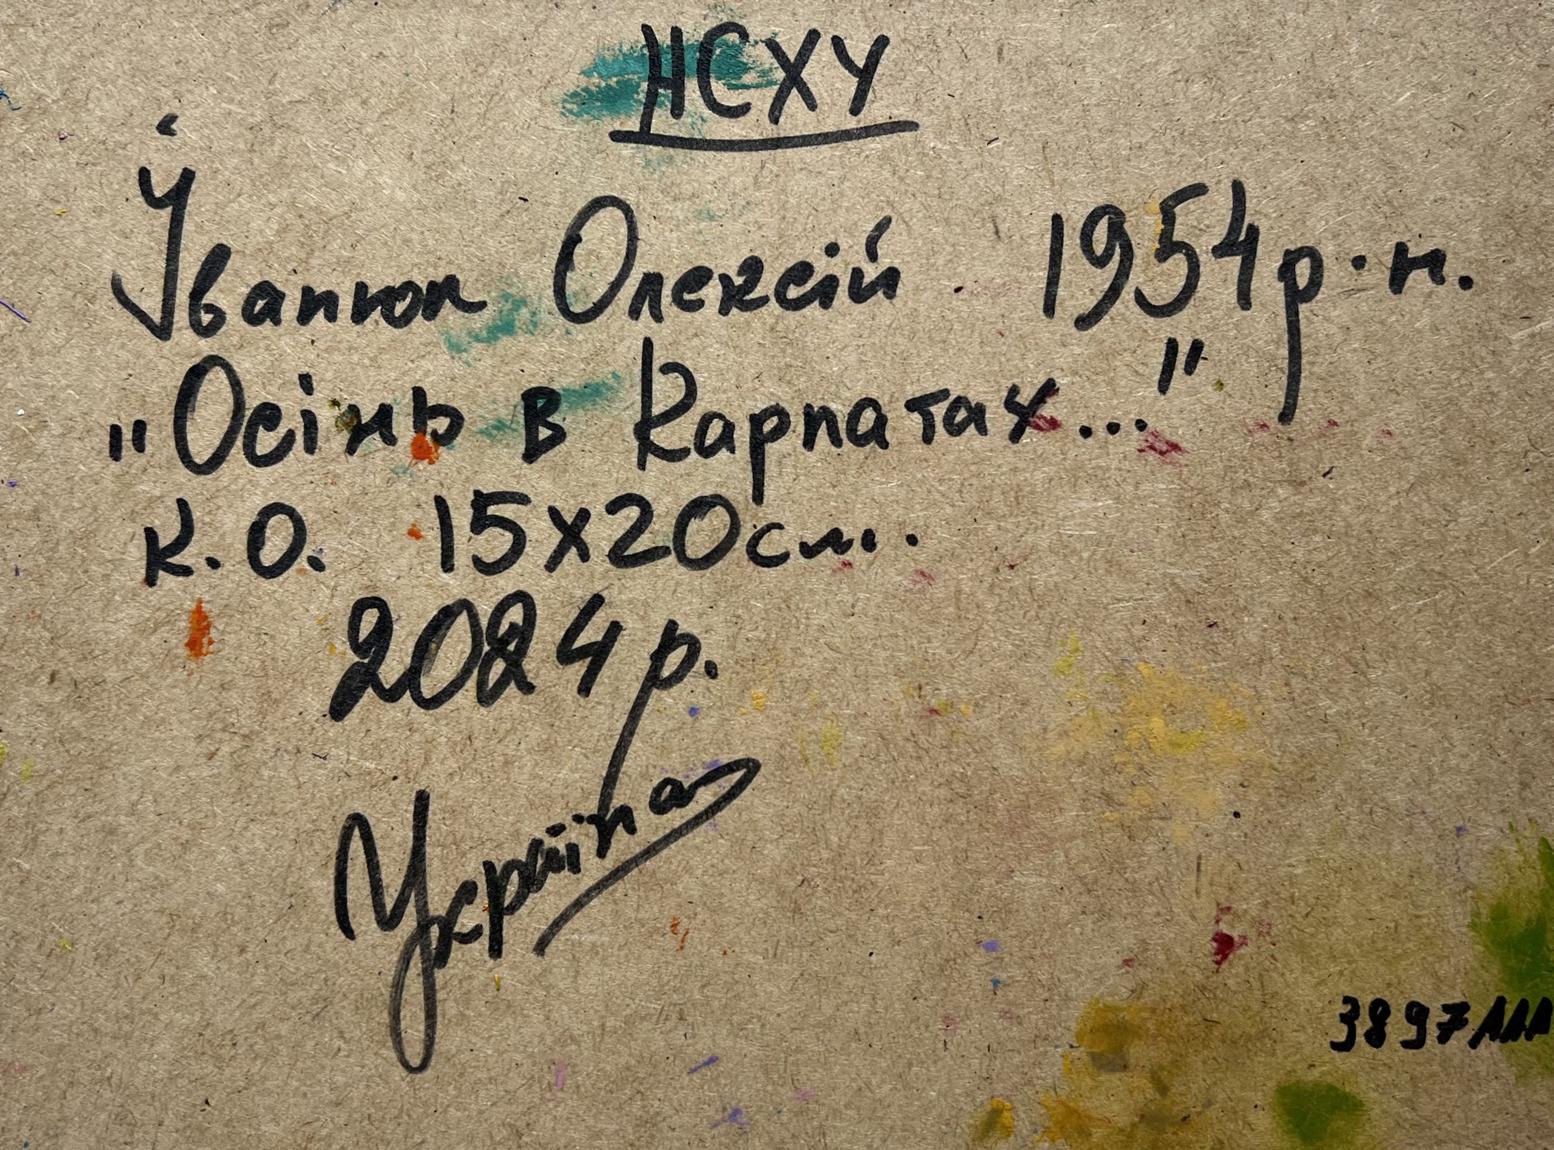 НСХУ
Іванюк Олексій 1954р.н.
"Осінь в Карпатах..."
к.о. 15х20см.
2024р.
Україна